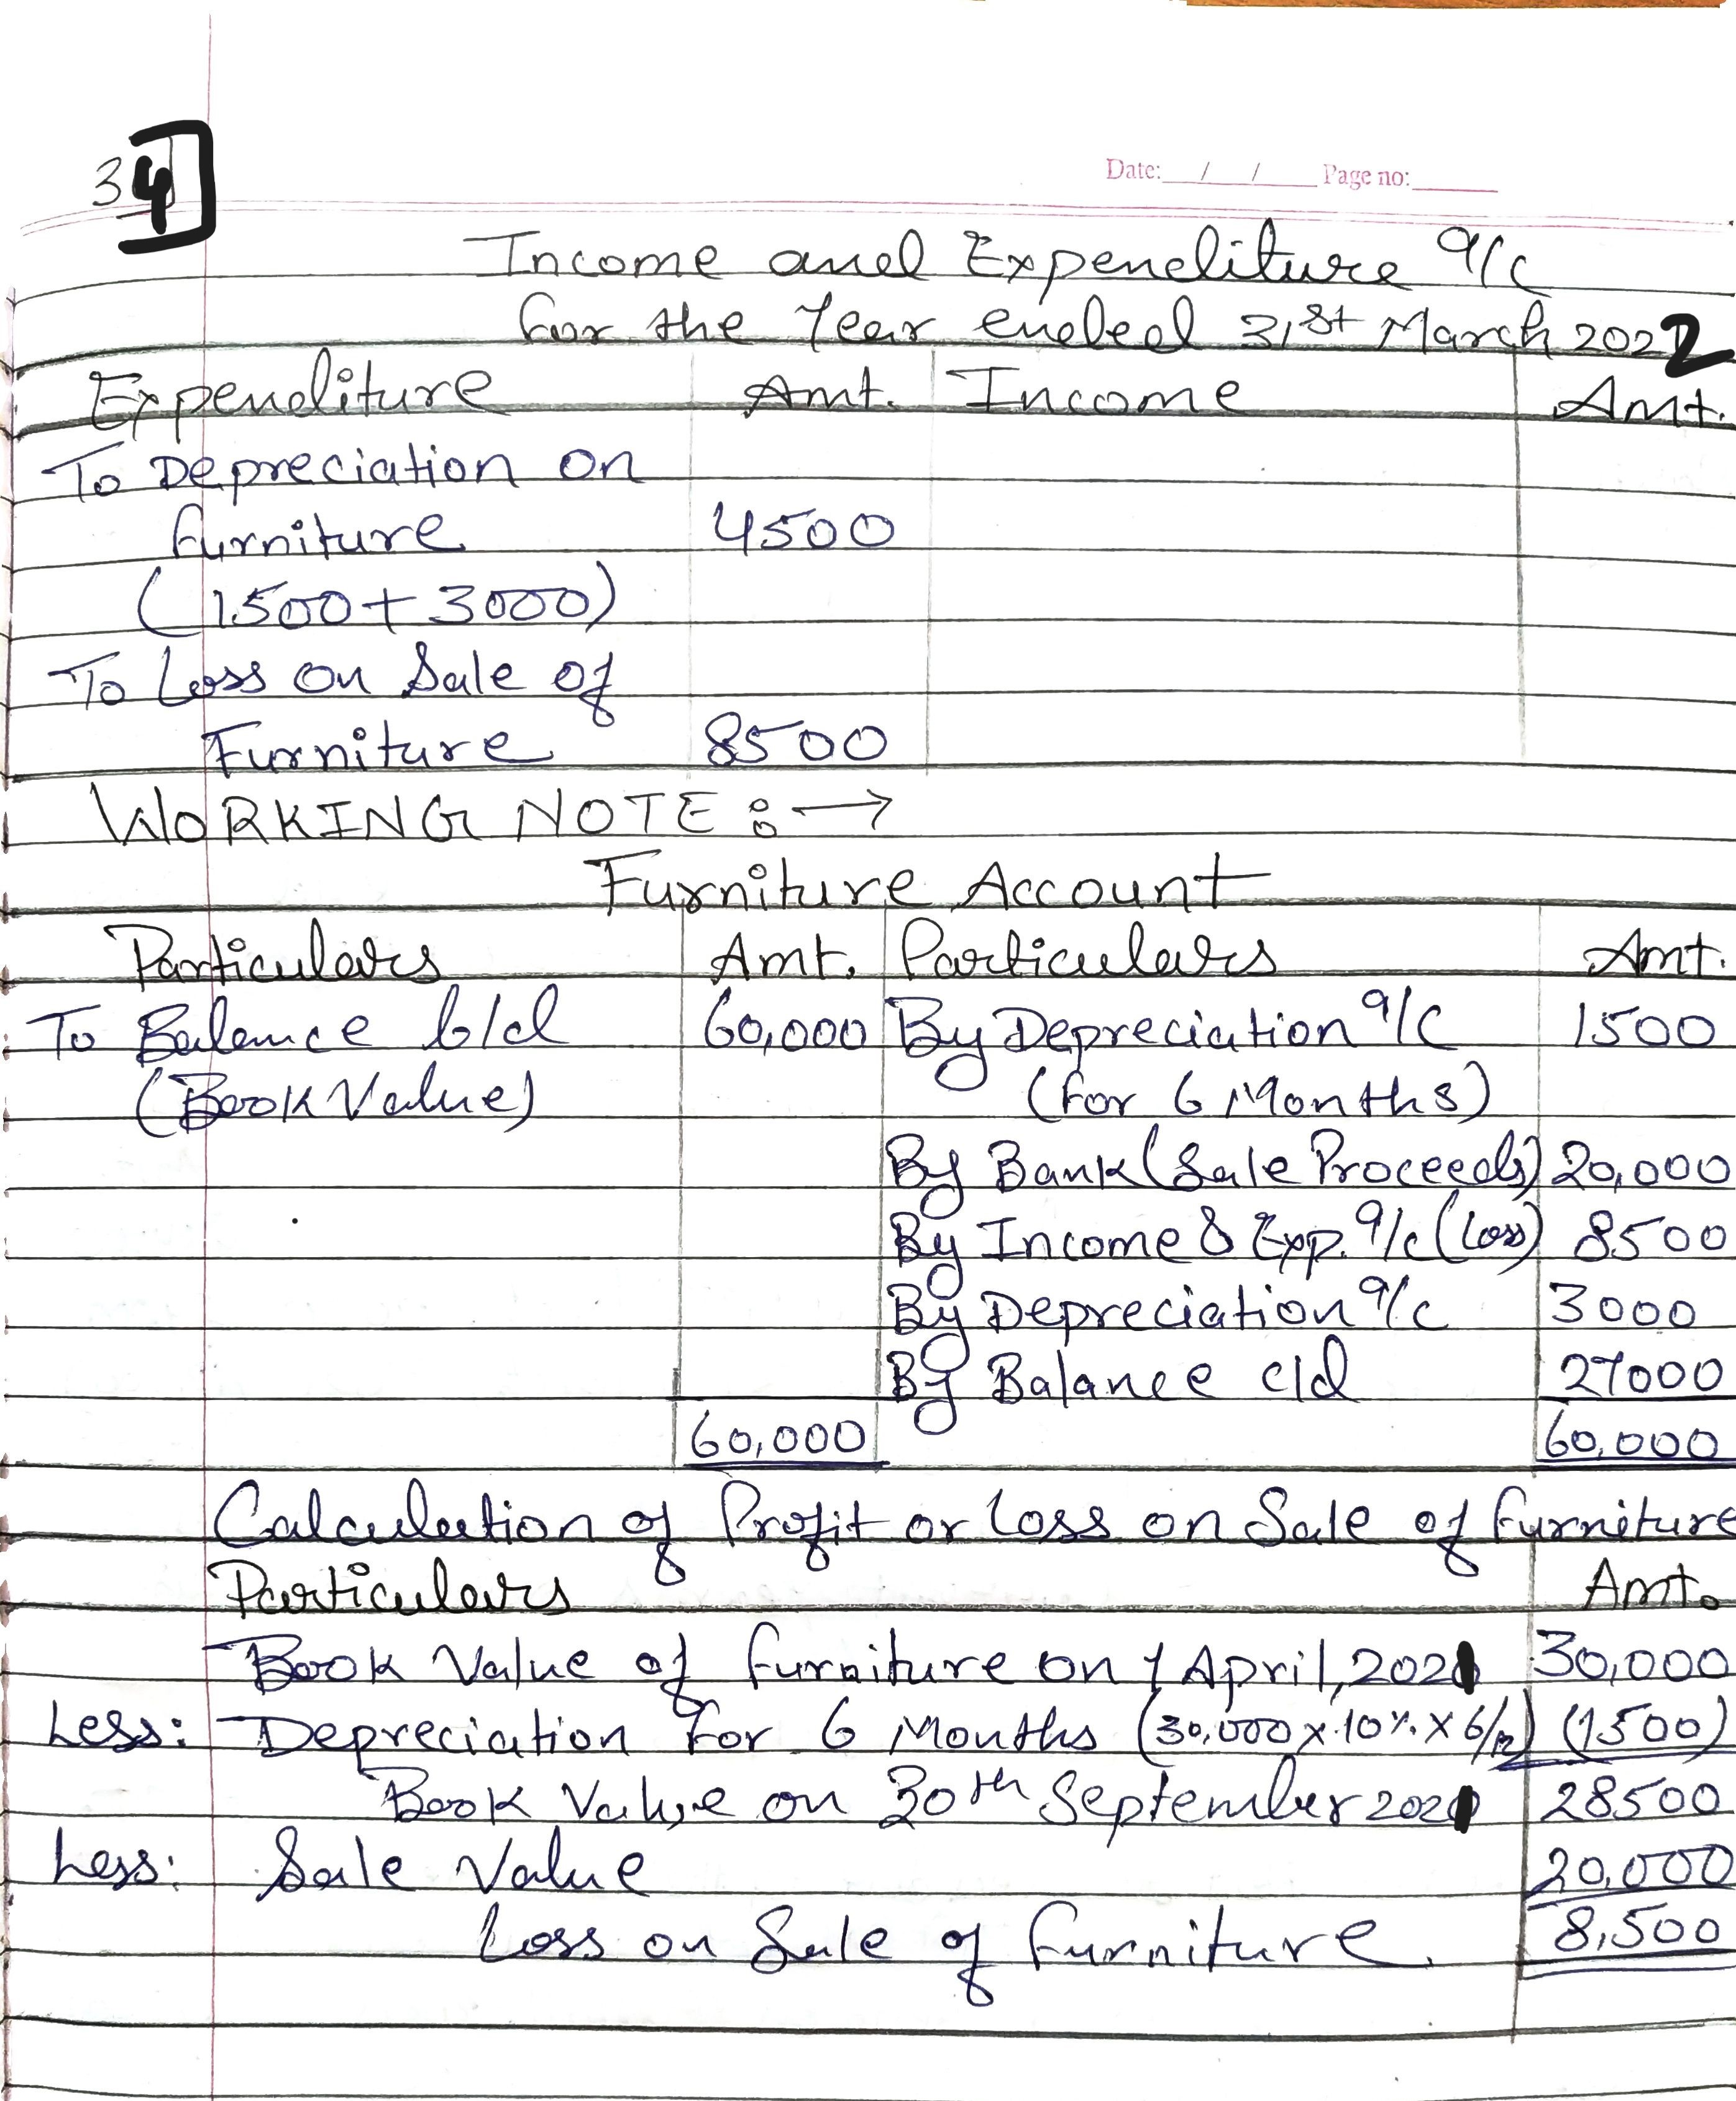 34
Date: / / Page no:
Income and Expenditure a/c
for the Year ended 31st March 2022
Expenditure Amt. Income Amt.
To Depreciation on
furniture 4500
(1500 + 3000)
To Loss on Sale of
Furniture 8500
WORKING NOTE :→
Furniture Account
Particulars Amt. Particulars Amt.
To Balance b/d 60,000 By Depreciation a/c 1500
(Book Value) (for 6 Months)
By Bank (Sale Proceeds) 20,000
By Income & Exp. a/c (Loss) 8500
By Depreciation a/c 3000
By Balance c/d 27000
60,000 60,000
Calculation of Profit or Loss on Sale of furniture
Particulars Amt.
Book Value of furniture on 1 April, 2021 30,000
Less: Depreciation for 6 Months (30,000 x 10% x 6/12) (1500)
Book Value on 30th September 2021 28500
Less: Sale Value 20,000
Loss on Sale of furniture. 8,500